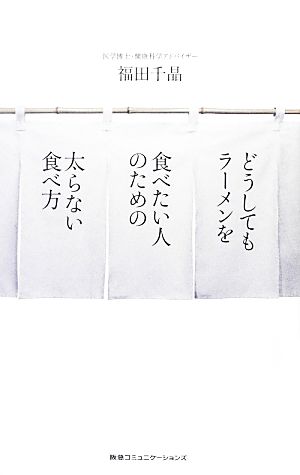 医学博士・健康科学アドバイザー
福田千晶
どうしても
ラーメンを
食べたい人
のための
太らない
食べ方
阪急コミュニケーションズ